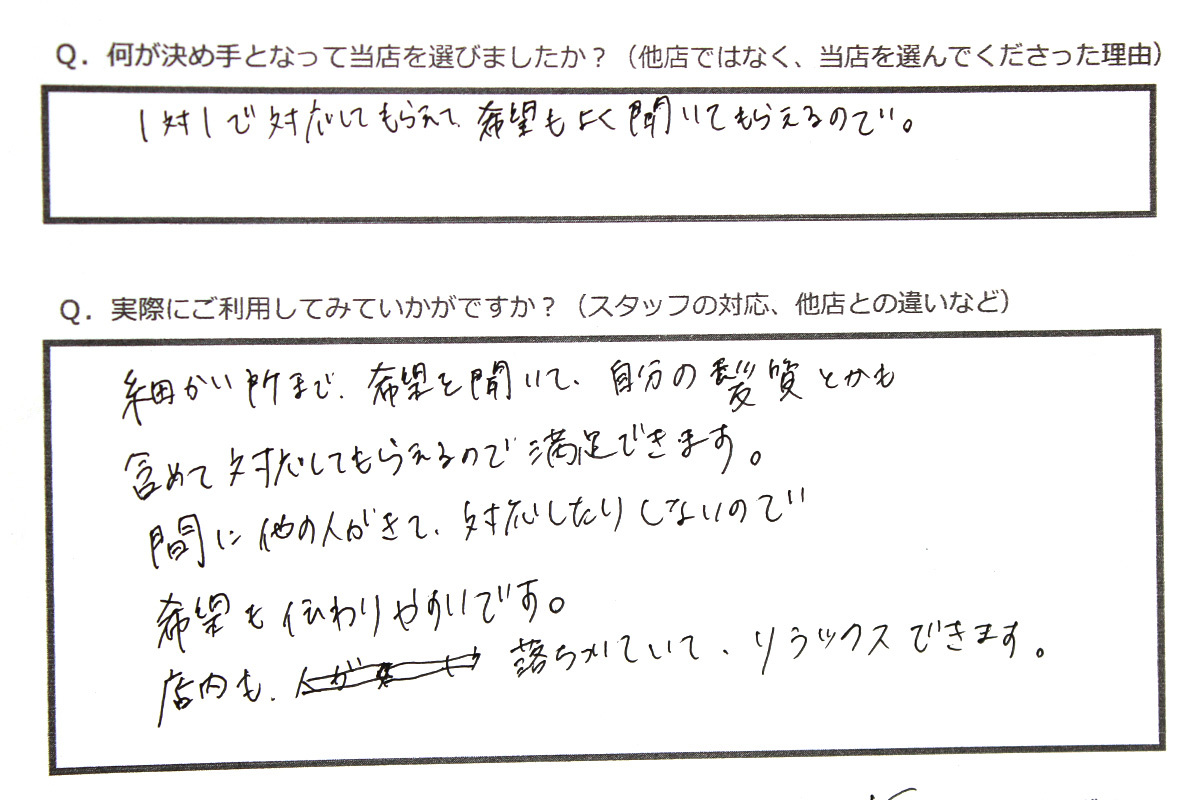 Q. 何が決め手となって当店を選びましたか？（他店ではなく、当店を選んでくださった理由）
1対1で対応してもらえて、希望もよく聞いてもらえるので。
Q. 実際にご利用してみていかがですか？（スタッフの対応、他店との違いなど）
細かい所まで、希望を聞いて、自分の髪質とかも
含めて対応してもらえるので満足できます。
間に他の人がきて、対応したりしないので
希望も伝わりやすいです。
店内も、落ちついていて、リラックスできます。